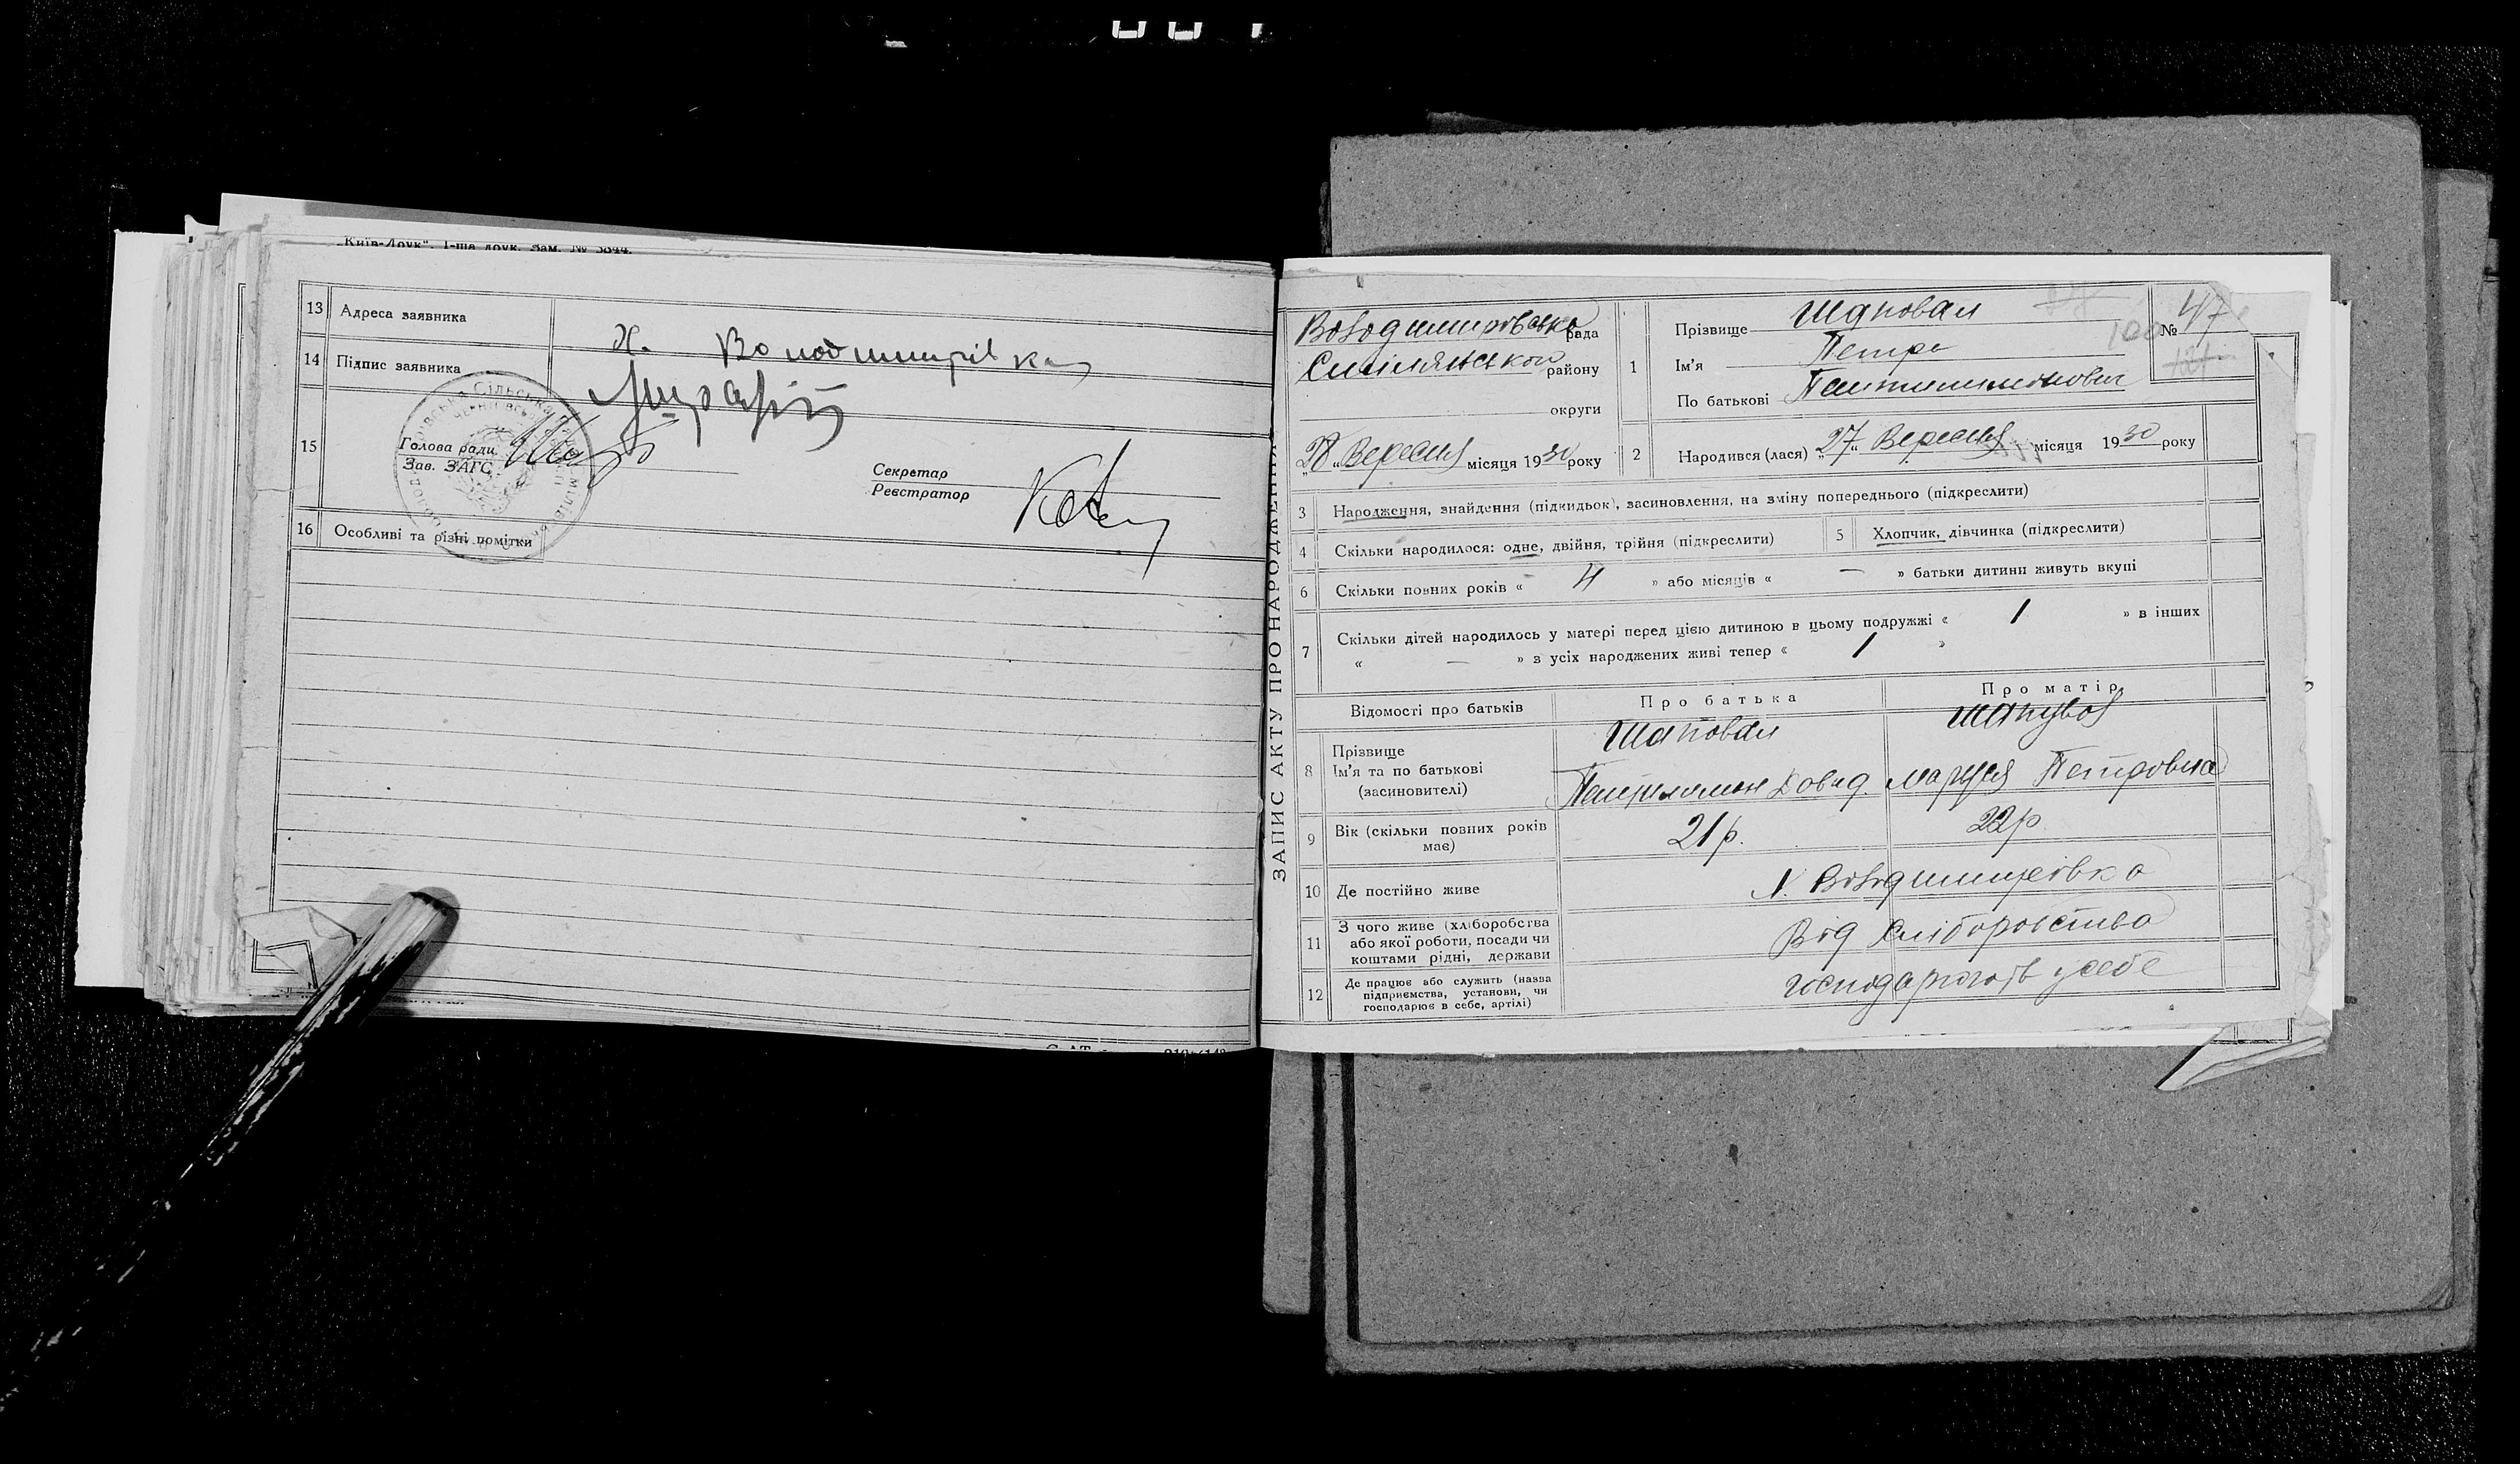 „Київ-Друк". 1-ша друк. Зам. № 3844.
13 Адреса заявника
Х. Володимирівка
14 Підпис заявника
15
Голова ради
Зав. ЗАГС
Секретар
Реєстратор
16 Особливі та різні помітки
ЗАПИС АКТУ ПРО НАРОДЖЕННЯ
Володимирівсько рада
Смілянського району
округи
„28" Вересня місяця 1930 року
1 Прізвище Шаповал
Ім'я Петро
По батькові Пантилимонович
№ 47
100
2 Народився (лася) „27" Вересня місяця 1930 року
3 Народження, знайдення (підкидьок), засиновлення, на зміну попереднього (підкреслити)
4 Скільки народилося: одне, двійня, трійня (підкреслити)
5 Хлопчик, дівчинка (підкреслити)
6 Скільки повних років « 4 » або місяців « — » батьки дитини живуть вкупі
7 Скільки дітей народилось у матері перед цією дитиною в цьому подружжі « 1 » в інших
« — » з усіх народжених живі тепер « 1 »
Відомості про батьків
Про батька
Про матір
8 Прізвище
Ім'я та по батькові
(засиновителі)
Шаповал
Пантилимон Довид.
Маруся Петровна
9 Вік (скільки повних років
має)
21 р.
22 р
10 Де постійно живе
Х. Володимирівка
11 З чого живе (хліборобства
або якої роботи, посади чи
коштами рідні, держави
Від Хліборобства
12 Де працює або служить (назва
підприємства, установи, чи
господарює в себе, артілі)
господарюють у себе